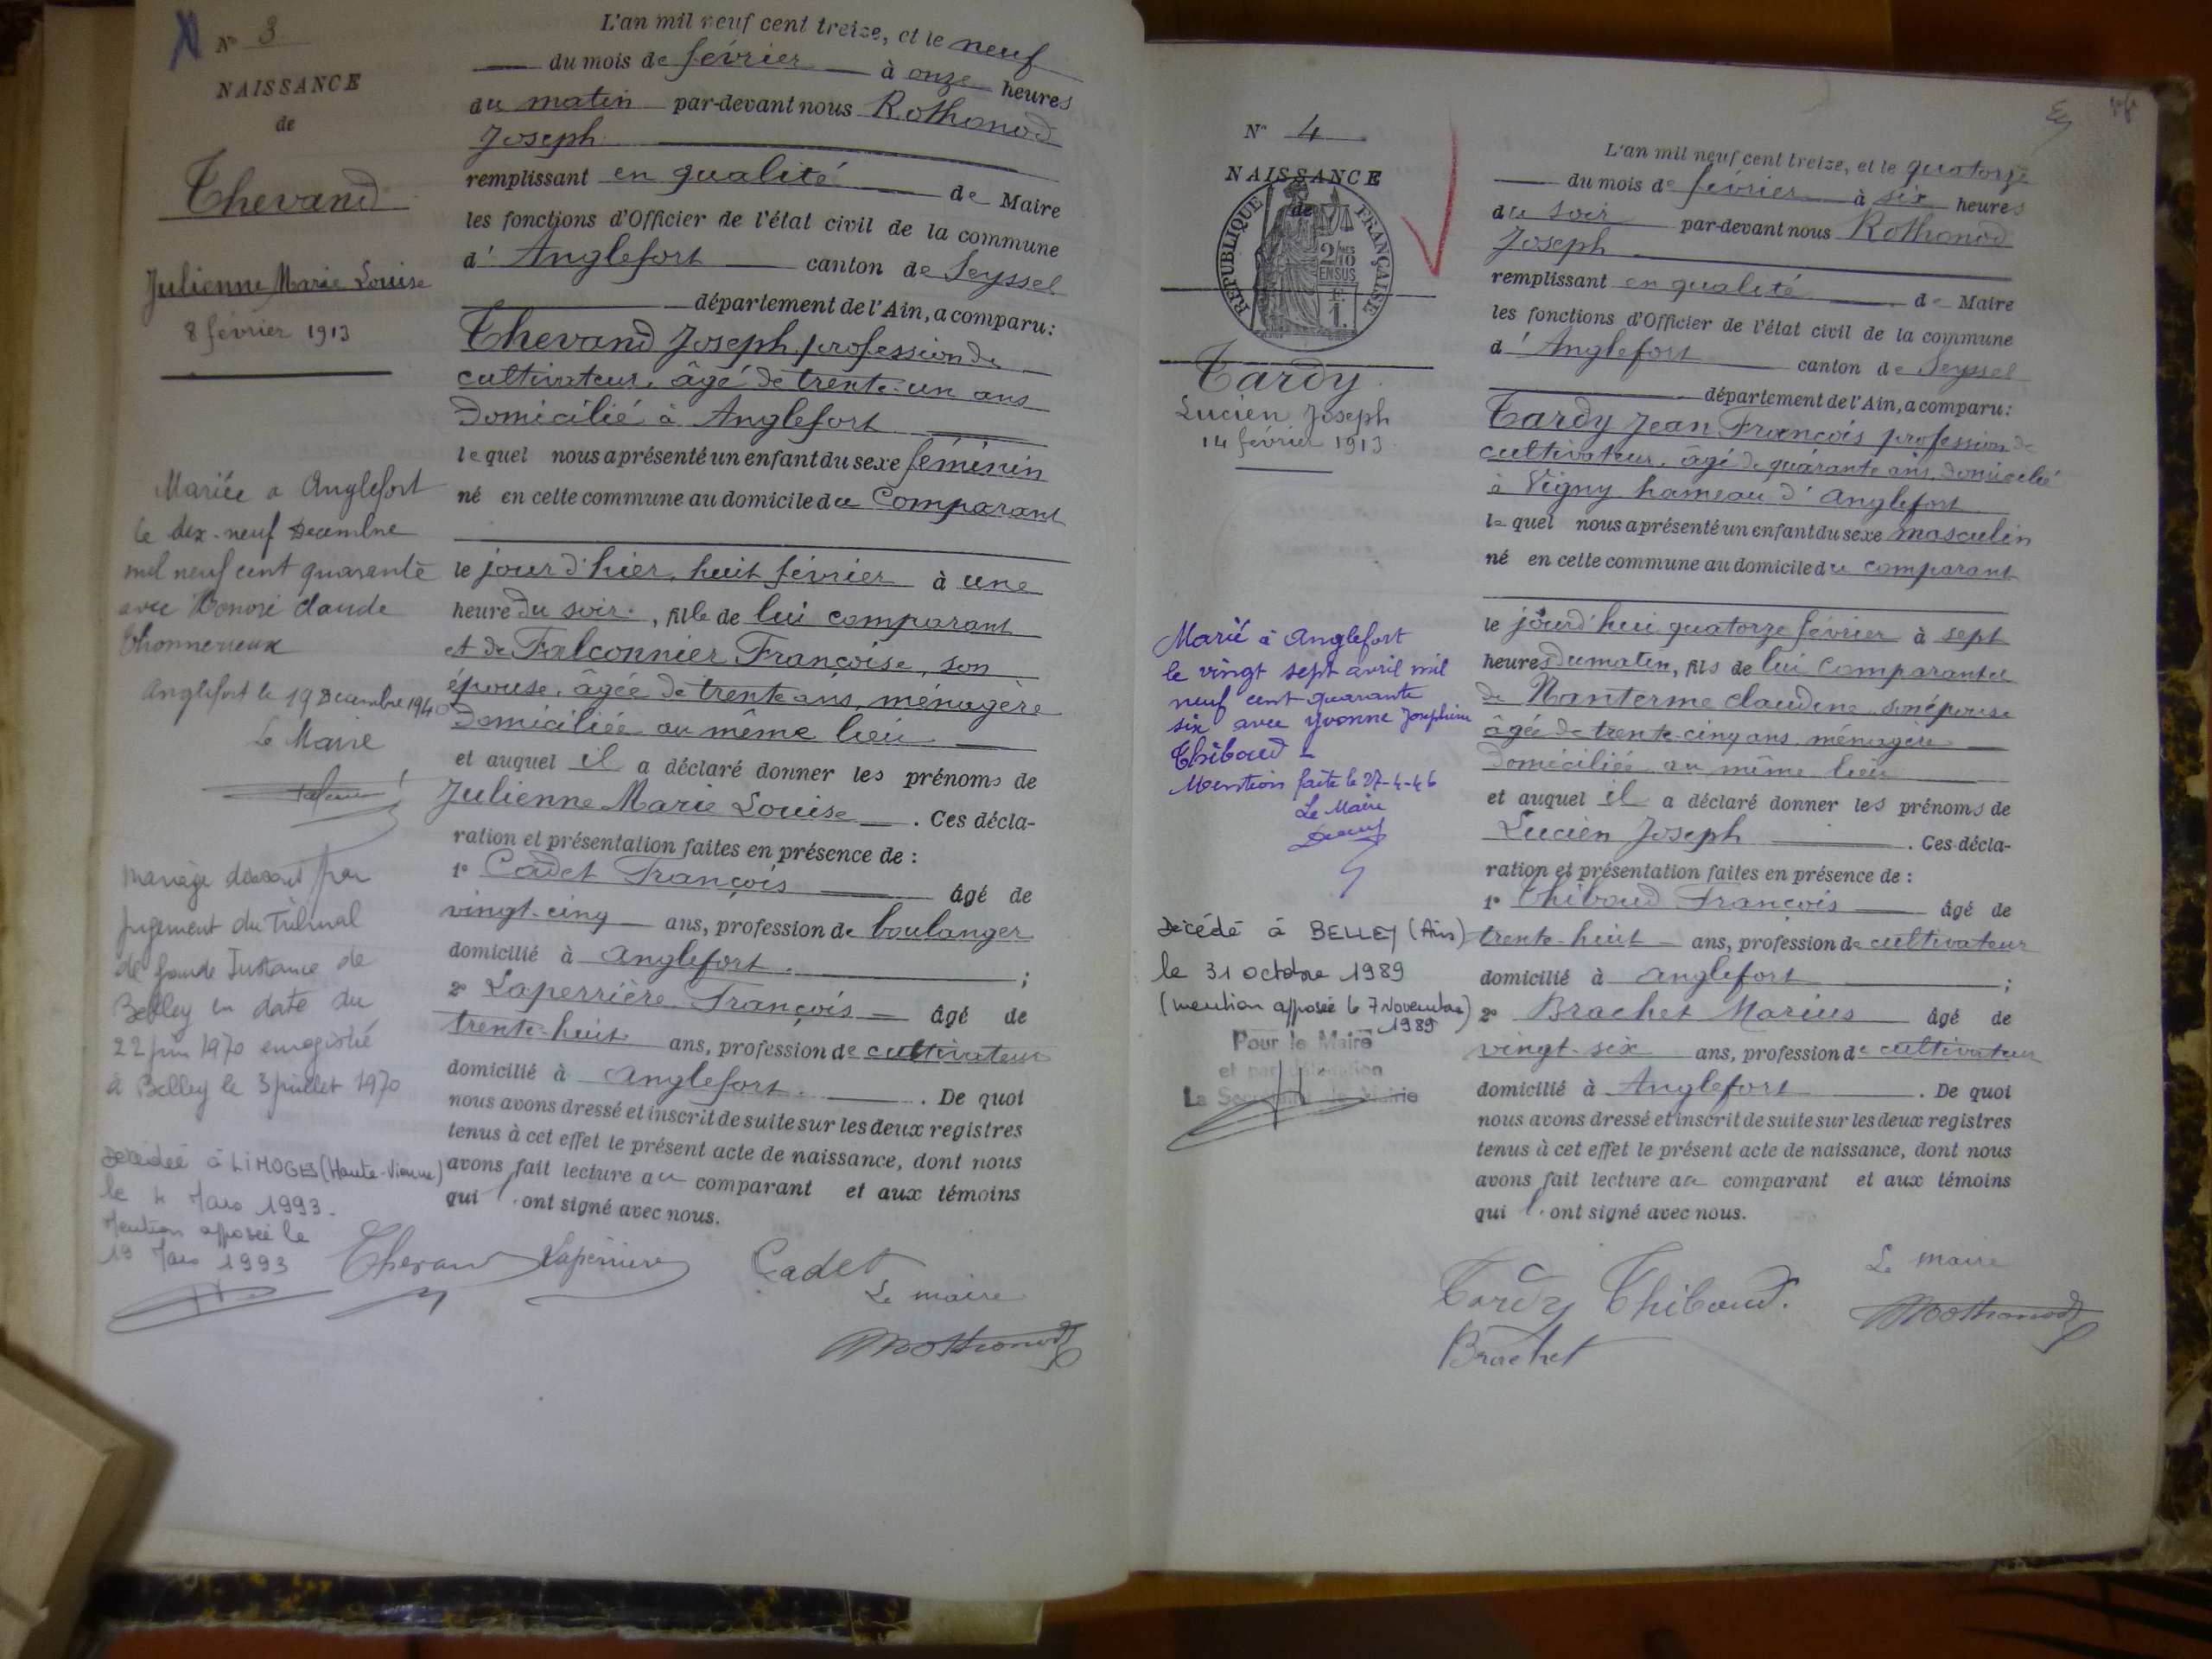 N° 3
NAISSANCE
de
Thevand
Julienne Marie Louise
8 février 1913
Mariée a Anglefort
le dix-neuf Decembre
mil neuf cent quarante
avec Honoré Claude
Anglefort le 19 Decembre 1940
Le Maire
Mariage dissout par
jugement du Tribunal
de Grande Instance de
Belley en date du
22 juin 1970 enregistré
à Belley le 3 juillet 1970
Décédée à LIMOGES (Haute-Vienne)
le 4 Mars 1993.
Mention apposée le
19 Mars 1993
L'an mil neuf cent treize, et le neuf
du mois de février à onze heures
du matin par-devant nous Rothonod
Joseph
remplissant en qualité de Maire
les fonctions d'Officier de l'état civil de la commune
d' Anglefort canton de Seyssel
département de l'Ain, a comparu:
Thevand Joseph, profession de
cultivateur, âgé de trente-un ans
domicilié à Anglefort
lequel nous a présenté un enfant du sexe féminin
né en cette commune au domicile du Comparant
le jour d'hier, huit février à une
heure du soir, fille de lui comparant
et de Falconnier Françoise, son
épouse, âgée de trente ans, ménagère
domiciliée au même lieu
et auquel il a déclaré donner les prénoms de
Julienne Marie Louise. Ces décla-
ration et présentation faites en présence de :
1° Cadet François âgé de
vingt-cinq ans, profession de boulanger
domicilié à Anglefort. ;
2° Laperrière François âgé de
trente-huit ans, profession de cultivateur
domicilié à Anglefort. De quoi
nous avons dressé et inscrit de suite sur les deux registres
tenus à cet effet le présent acte de naissance, dont nous
avons fait lecture au comparant et aux témoins
qui l'ont signé avec nous.
Thevand Laperriere Cadet
Le maire
Rothonod
N° 4
NAISSANCE
de
RÉPUBLIQUE FRANÇAISE
2/10
EN SUS
Tardy
Lucien Joseph
14 février 1913
Marié à Anglefort
le vingt sept avril mil
neuf cent quarante
six avec Yvonne Joséphine
Thibaud
Mention faite le 27-4-46
Le Maire
Décédé à BELLEY (Ain)
le 31 octobre 1989
(mention apposée le 7 Novembre
1989)
Pour le Maire
et par délégation
La Secrétaire de Mairie
L'an mil neuf cent treize, et le quatorze
du mois de février à six heures
du soir par-devant nous Rothonod
Joseph
remplissant en qualité de Maire
les fonctions d'Officier de l'état civil de la commune
d' Anglefort canton de Seyssel
département de l'Ain, a comparu:
Tardy Jean François profession de
cultivateur, âgé de quarante ans, domicilié
à Vigny hameau d'Anglefort
lequel nous a présenté un enfant du sexe masculin
né en cette commune au domicile du comparant
le jourd'hui quatorze février à sept
heures du matin, fils de lui comparant et
de Nanterme Claudine son épouse
âgée de trente-cinq ans ménagère
domiciliée au même lieu
et auquel il a déclaré donner les prénoms de
Lucien Joseph. Ces décla-
ration et présentation faites en présence de :
1° Thibaud François âgé de
trente-huit ans, profession de cultivateur
domicilié à Anglefort ;
2° Brachet Marius âgé de
vingt-six ans, profession de cultivateur
domicilié à Anglefort. De quoi
nous avons dressé et inscrit de suite sur les deux registres
tenus à cet effet le présent acte de naissance, dont nous
avons fait lecture au comparant et aux témoins
qui l'ont signé avec nous.
Tardy Thibaud.
Le maire
Brachet
Rothonod